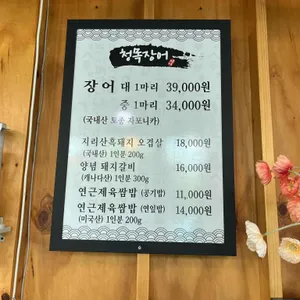 청뚝장어
장어 대 1마리 39,000원
중 1마리 34,000원
(국내산 토종 자포니카)
지리산흑돼지 오겹살 18,000원
(국내산) 1인분 200g
양념 돼지갈비 16,000원
(캐나다산) 1인분 300g
연근제육쌈밥 (공기밥) 11,000원
연근제육쌈밥 (연잎밥) 14,000원
(미국산) 1인분 200g